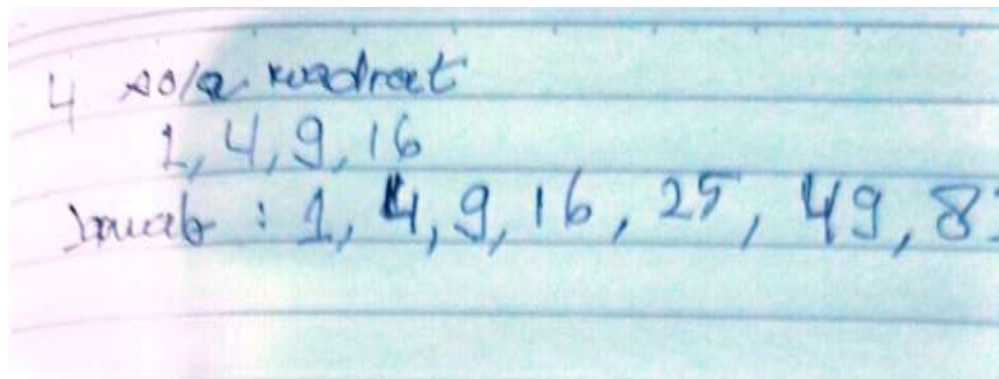 4 pola kuadrat
1, 4, 9, 16
Jawab : 1, 4, 9, 16, 25, 49, 8